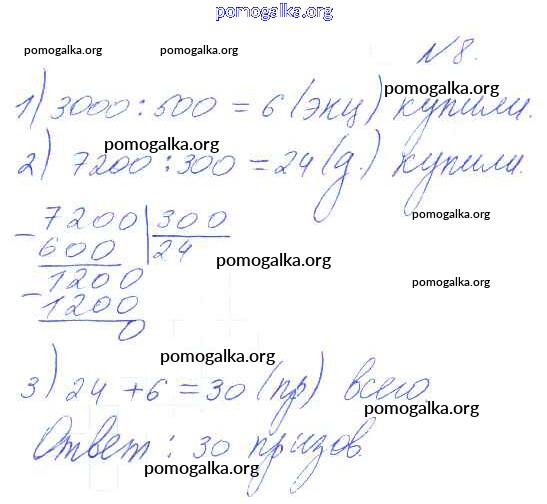 pomogalka.org
pomogalka.org pomogalka.org № 8.
pomogalka.org
1) 3000 : 500 = 6 (экц) купили.
pomogalka.org
2) 7200 : 300 = 24 (д.) купили.
pomogalka.org
- 7200 | 300
600 24
pomogalka.org
- 1200 pomogalka.org
1200
0
pomogalka.org
3) 24 + 6 = 30 (пр) всего.
pomogalka.org
Ответ : 30 призов.
pomogalka.org